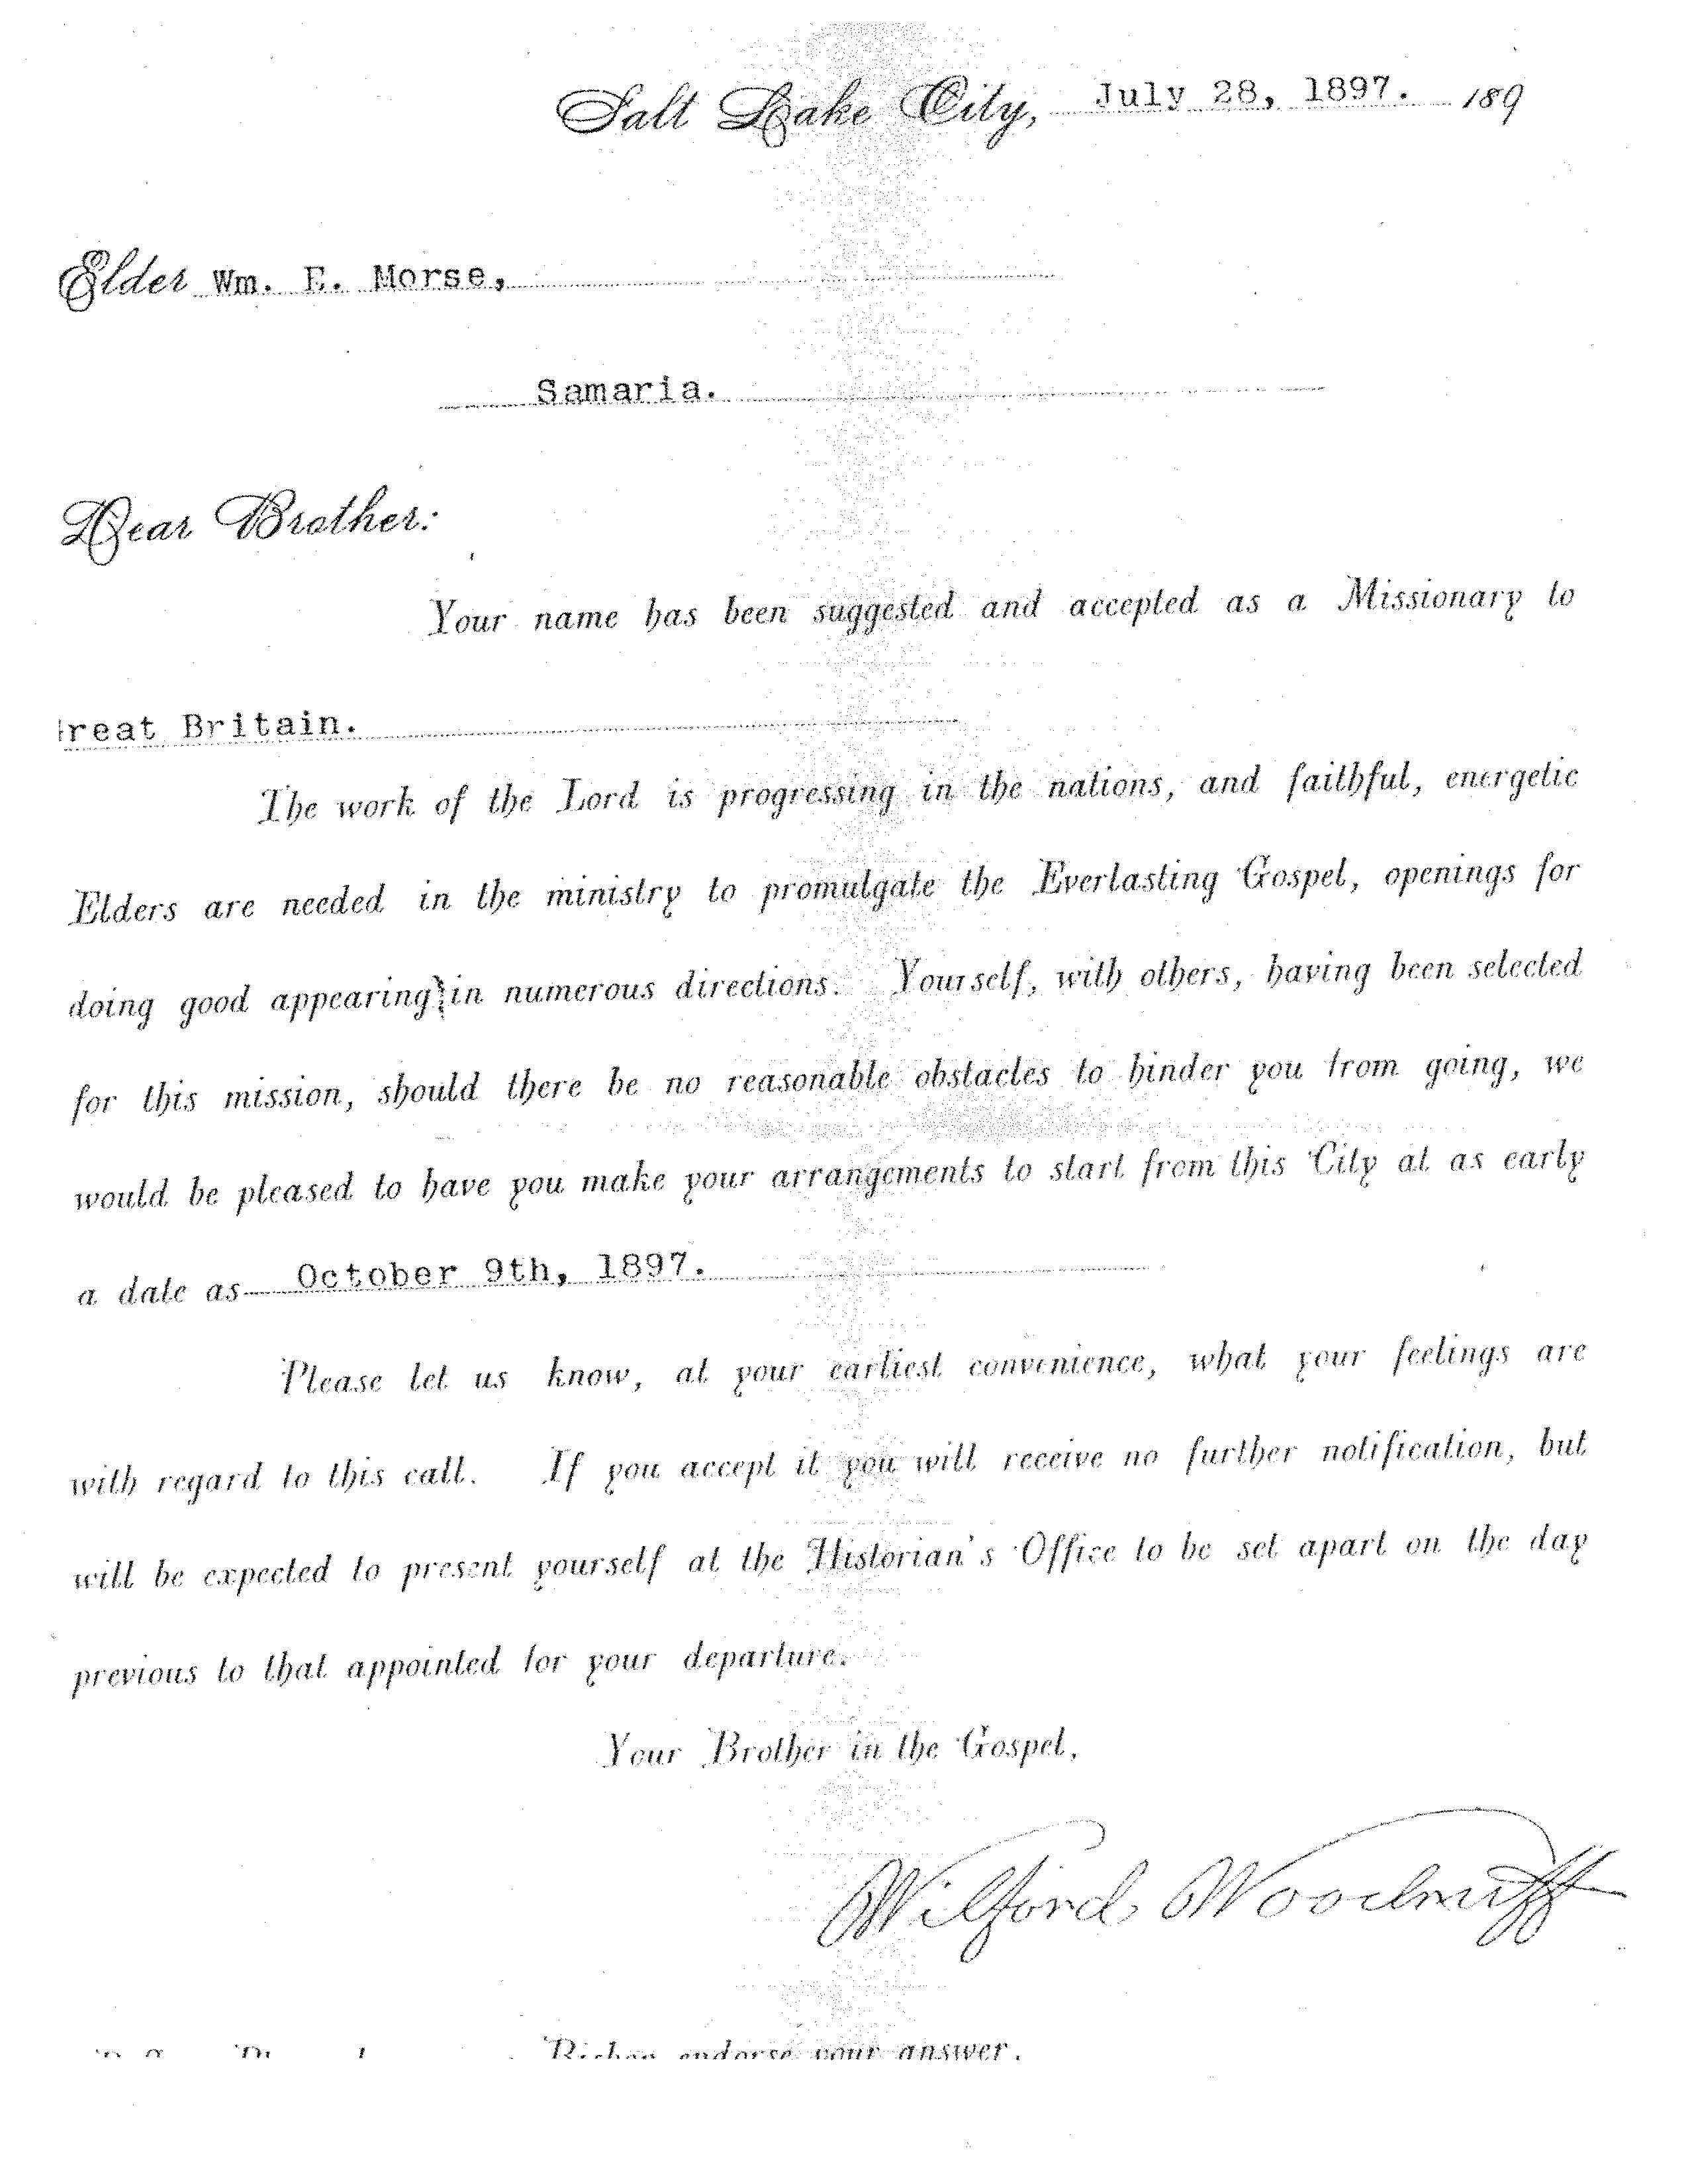 Salt Lake City, July 28, 1897. 189
Elder Wm. E. Morse,
Samaria.
Dear Brother:
Your name has been suggested and accepted as a Missionary to
Great Britain.
The work of the Lord is progressing in the nations, and faithful, energetic
Elders are needed in the ministry to promulgate the Everlasting Gospel, openings for
doing good appearing in numerous directions. Yourself, with others, having been selected
for this mission, should there be no reasonable obstacles to hinder you from going, we
would be pleased to have you make your arrangements to start from this City at as early
a date as October 9th, 1897.
Please let us know, at your earliest convenience, what your feelings are
with regard to this call. If you accept it you will receive no further notification, but
will be expected to present yourself at the Historian's Office to be set apart on the day
previous to that appointed for your departure.
Your Brother in the Gospel,
Wilford Woodruff
Bishop endorse your answer.